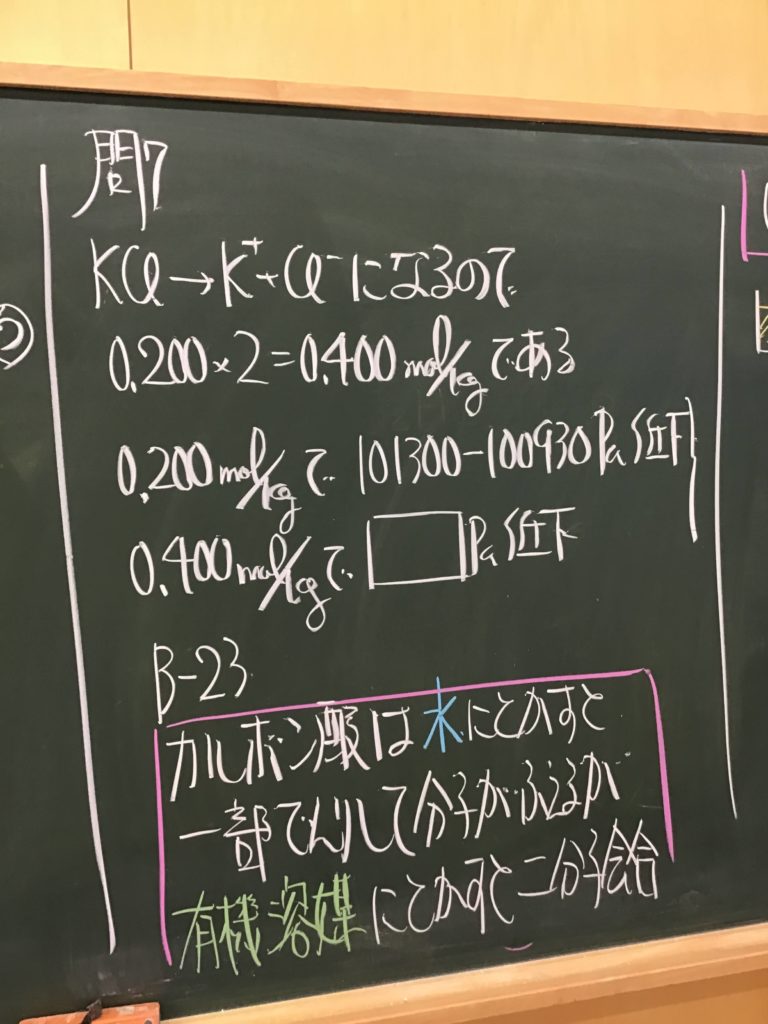 問7
KCl→K⁺+Cl⁻になるので
0.200×2=0.400mol/kgである
0.200mol/kgで 101300-100930Pa低下
0.400mol/kgで □Pa低下
B-23
カルボン酸は水にとかすと
一部でんりして分子がふえるが
有機溶媒にとかすと二分子会合